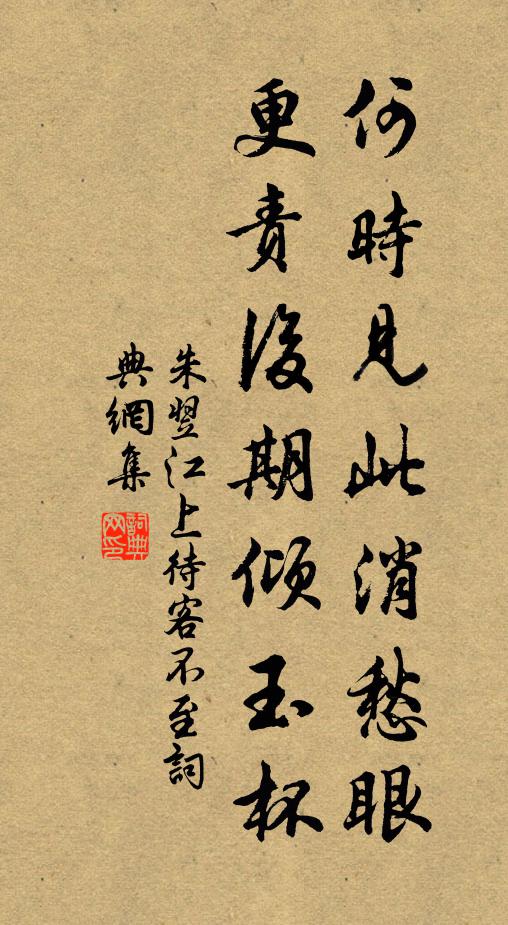 何時見此消愁眼
更責後期傾玉杯
朱翌江上待客不至詞
典網集
詞典網印